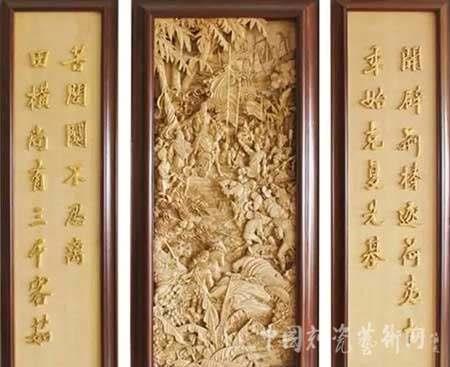 開辟荊榛逐荷夷十
年始克复先基
田橫尚有三千客茹
苦間關不忍離
中國刻瓷藝術网